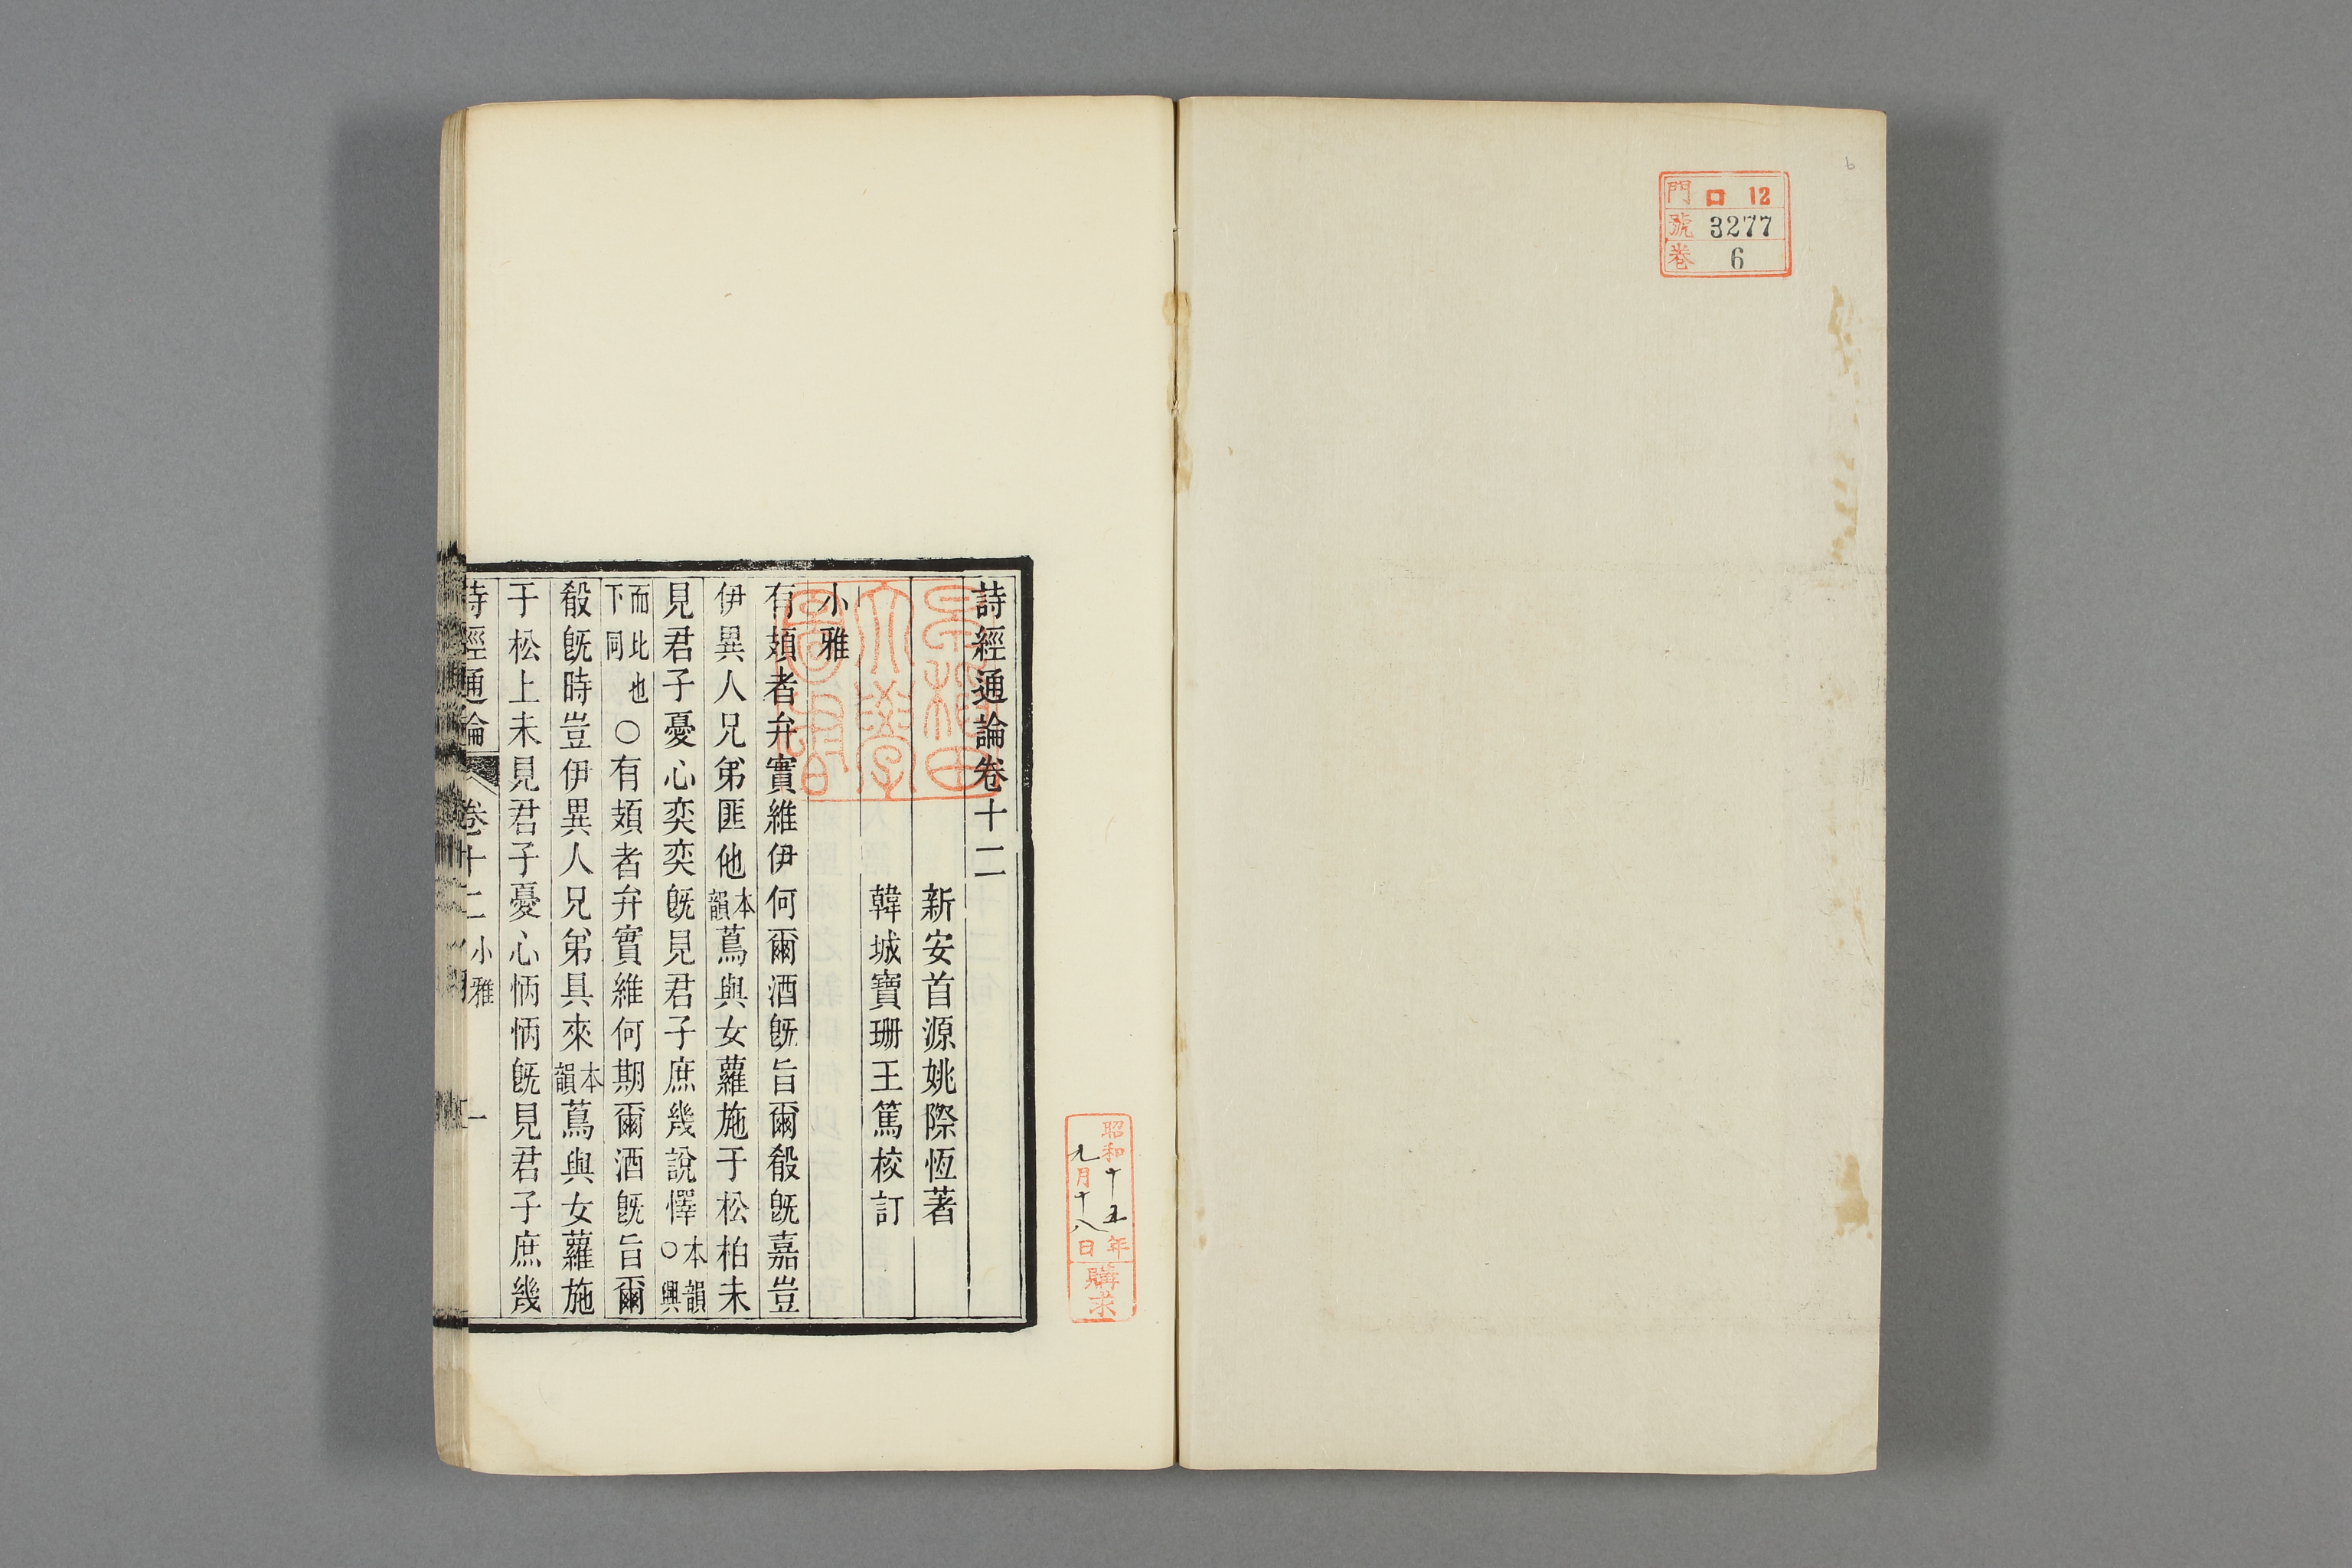 6
門 ロ 12
號 3277
卷 6
昭和十五年
九月十八日
購求
早稲田
大學
圖書
詩經通論卷十二
新安首源姚際恆著
韓城寶珊王篤校訂
小雅
有頍者弁實維伊何爾酒旣旨爾殽旣嘉豈
伊異人兄弟匪他本韻蔦與女蘿施于松柏未
見君子憂心奕奕旣見君子庶幾說懌本韻○興
而比也下同○有頍者弁實維何期爾酒旣旨爾
殽旣時豈伊異人兄弟具來本韻蔦與女蘿施
于松上未見君子憂心怲怲旣見君子庶幾
詩經通論 卷十二 小雅 一